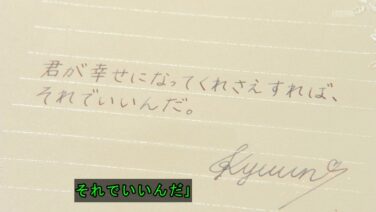 君が幸せになってくれさえすれば、
それでいいんだ。
Kyuun
それでいいんだ」